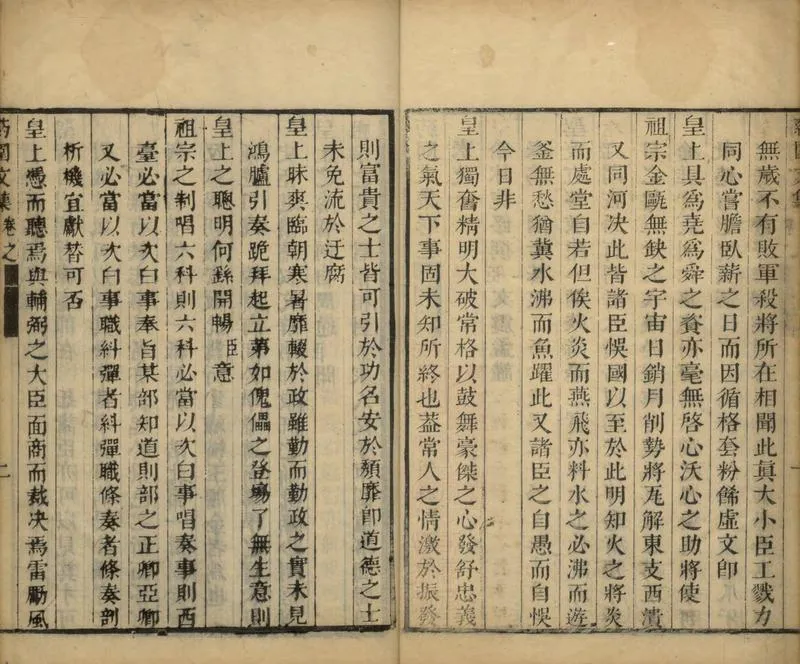 無歲不有敗軍殺將所在相聞此眞大小臣工戮力
同心嘗膽臥薪之日而因循格套粉餙虛文卽
皇上具爲堯爲舜之資亦毫無啓心沃心之助將使
祖宗金甌無缺之宇宙日銷月削勢將瓦解東支西潰
又同河决此皆諸臣悞國以至於此明知火之將炎
而處堂自若但俟火炎而燕飛亦料水之必沸而遊
釜無愁猶冀水沸而魚躍此又諸臣之自愚而自悞
今日非
皇上獨奮精明大破常格以鼓舞豪傑之心發舒忠義
之氣天下事固未知所終也葢常人之情激於振發
則富貴之士皆可引於功名安於頹靡卽道德之士
未免流於迂腐
皇上昧爽臨朝寒暑靡輟於政雖勤而勤政之實未見
鴻臚引奏跪拜起立第如傀儡之登場了無生意則
皇上之聰明何繇開暢臣意
祖宗之制唱六科則六科必當以次白事唱奏事則西
臺必當以次白事奉旨某部知道則部之正卿亞卿
又必當以次白事職糾彈者糾彈職條奏者條奏剖
析機宜獻替可否
皇上憑而聽焉與輔弼之大臣面商而裁决焉雷勵風
園文集 卷之 二